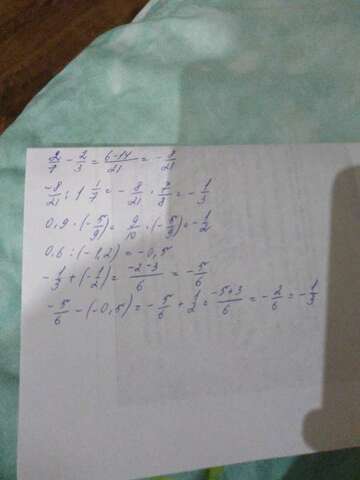 2/7 - 2/3 = (6-14)/21 = -8/21
-8/21 : 1 1/7 = -8/21 · 7/8 = -1/3
0,9 · (-5/9) = 9/10 · (-5/9) = -1/2
0,6 : (-1,2) = -0,5
-1/3 + (-1/2) = (-2-3)/6 = -5/6
-5/6 - (-0,5) = -5/6 + 1/2 = (-5+3)/6 = -2/6 = -1/3